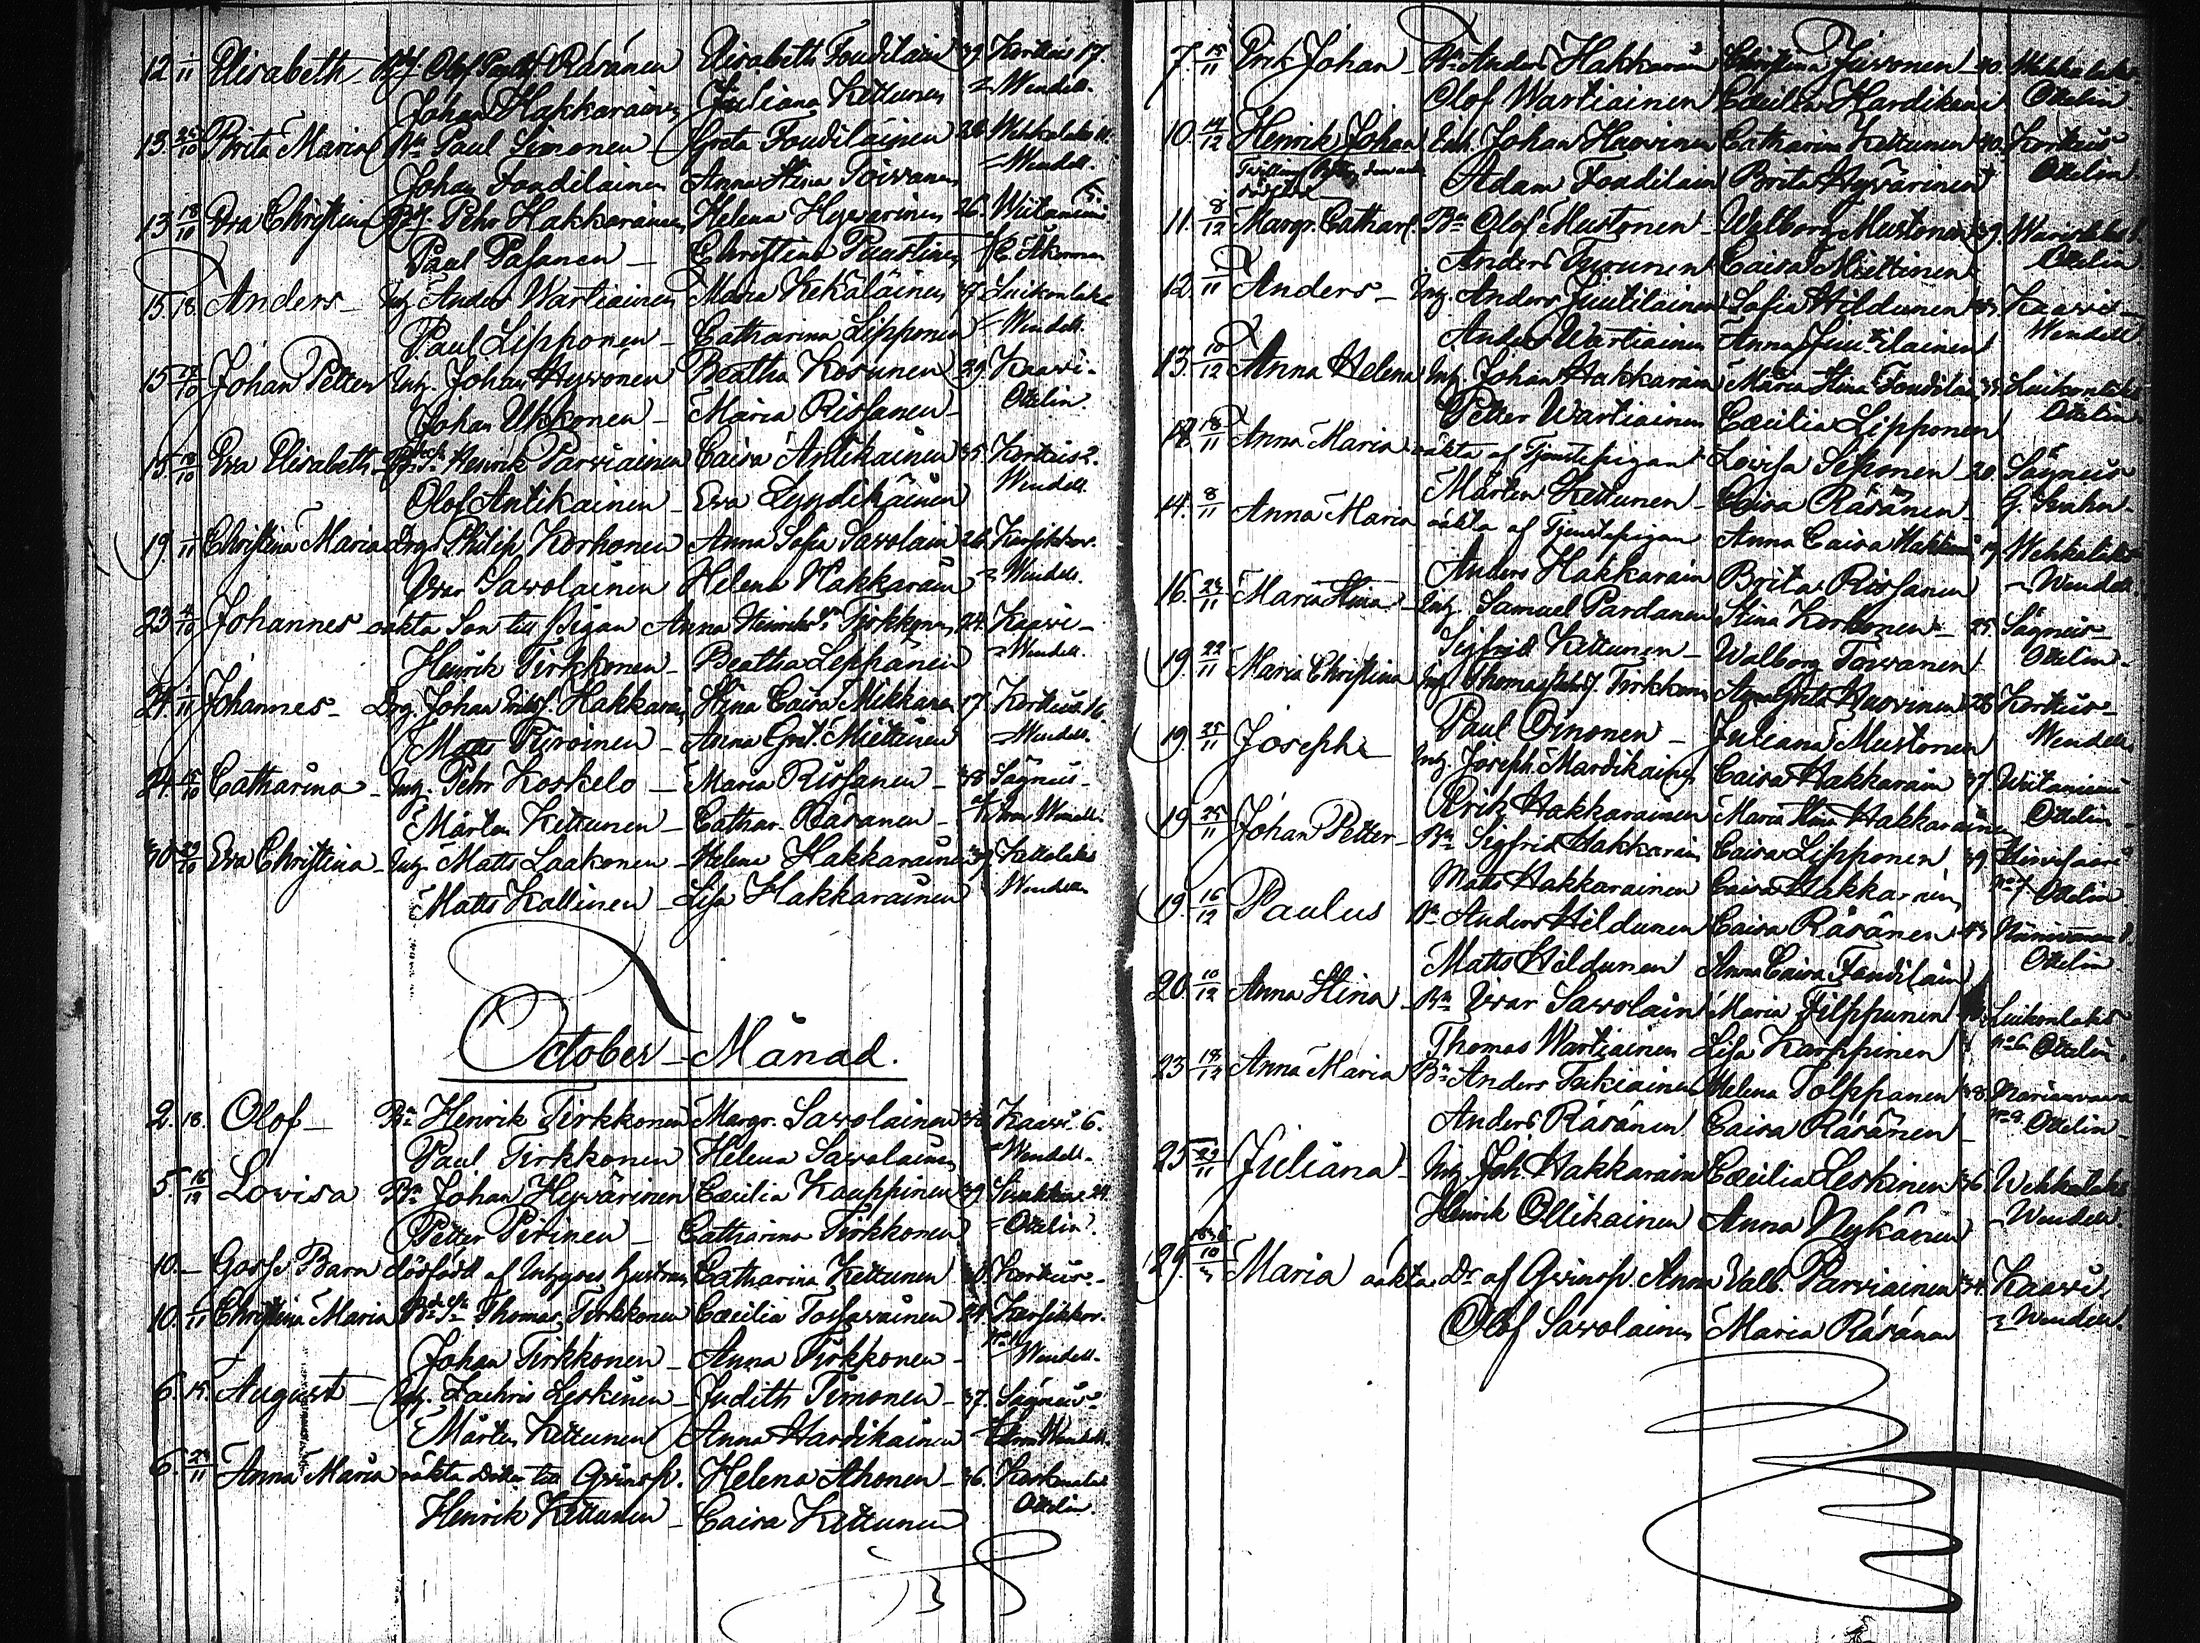 12. 1/11 Elisabeth Olof Räsänen Elisabeth Foudilain 39. Kortteis 17.
Johan Hakkarainen Juliana Kettunen Wendell.
13. 25/10 Brita Maria Bn Paul Simonen Greta Foudilainen Wehkalaks
Johan Foudilainen Anna Stina Toivanen Wendell.
13. 18/10 Eva Christina Pehr Hakkarainen Helena Hyvärinen 26. Wiitaniemi
Paul Pasanen Christina Puustinen
15. 18. Anders Inh. Anders Wartiainen Maria Kekäläinen 37 Luikonlaks
Paul Lipponen Catharina Lipponen Wendell.
15. Johan Petter Inh. Johan Hyvönen Beatha Kosunen 29. Kaavi
Johan Ukkonen Maria Rissanen Ottelin.
15. 18/10 Eva Elisabeth Henrik Parviainen Caisa Antikainen 35. Kortteis 2.
Olof Antikainen Eva Lyydikäinen Wendell.
19. 1/11 Christina Maria Drg. Philip Korhonen Anna Sofia Savolain 26.
Ivar Savolainen Helena Hakkarain Wendell.
23. Johannes oäkta Son till Pigan Anna Tirkkonen 24. Kaavi
Henrik Tirkkonen Beatha Leppänen Wendell.
24. 1/11 Johannes Drg. Johan Hakkarain Stina Caisa Mikkanen 17. Kortteis 16.
Matts Piiroinen Anna Gret. Miettinen Wendell.
24. Catharina Inh. Pehr Koskelo Maria Rissanen 38 Sägneis
Mårten Kettunen Cathar. Räsänen
30. 29/10 Eva Christina Inh. Matts Laakonen Helena Hakkarainen 39.
Matts Kallinen Lisa Hakkarainen Wendell
October Månad.
2. 18. Olof Bn Henrik Tirkkonen Margr. Savolainen Kaavi 6.
Paul Tirkkonen Helena Savolainen Wendell.
5. 16/12 Lovisa Bn Johan Hyvärinen Cæcilia Kauppinen 39.
Petter Pirinen Catharina Tirkkonen Ottelin.
10. Gosse Barn dödfödt af Inhyses hustrun Catharina Kettunen Kortteis
10. 1/11 Christina Maria Thomas Tirkkonen Cæcilia Toissavainen 24.
Johan Tirkkonen Anna Tirkkonen Wendell.
6. 15. August Inh. Zachris Leskinen Judith Timonen 37. Sägneis
Mårten Kettunen Anna Hardikainen
6. Anna Maria oäkta Dotter till Qvinsp. Helena Ahonen 36.
Henrik Kettunen Caisa Kettunen Ottelin.
7. 15/11 Erik Johan Bn Anders Hakkarain Christina Juvonen 40. Wehkalaks
Olof Wartiainen Cæcilia Hardikain Ottelin
10. 14/12 Henrik Johan Enk. Johan Havinen Catharina Kettunen 40. Kortteis
Adam Foudilain Brita Hyvärinen Ottelin
11. 8/12 Margr. Cathar. Bn Olof Mustonen Walborg Mustonen 39.
Anders Turunen Caisa Miettinen Ottelin
12. 1/11 Anders Inh. Anders Juutilainen Sofia Hildunen Kaavi
Anders Wartiainen Anna Juutilainen Wendell
13. 10/12 Anna Helena Inh. Johan Hakkarain Maria Stina Foudilain Luikonlaks
Petter Wartiainen Cæcilia Lipponen Ottelin
18/11 Anna Maria oäkta af Tjenstepigan Lovisa 20. Sägneis
Mårten Kettunen Caisa Räsänen
14. 8/11 Anna Maria oäkta af Tjenstepigan Anna Caisa 19. Wehkalaks
Anders Hakkarain Brita Rissanen Wendell.
16. Maria Stina Inh. Samuel Pardanen Stina Korhonen 25. Sägneis
Sigfrid Kettunen Walborg Toivanen Ottelin
19. 22/11 Maria Christina Inh. Thomas Tirkkonen Anna Greta Havinen 28 Kortteis
Paul Oinonen Juliana Mustonen Wendell
19. 25/11 Joseph Inh. Joseph Mardikainen Caisa Hakkarain 37. Wiitaniemi
Erik Hakkarainen Maria Stina Hakkarainen Ottelin
19. 25/11 Johan Petter Bn Sigfrid Hakkarain Caisa Lipponen 39. Hirvisaari
Matts Hakkarainen Caisa Hakkarain Ottelin
19. 16/12 Paulus Bn Anders Hildunen Caisa Räsänen 43
Matts Hildunen Anna Caisa Foudilain Ottelin
20. 10/12 Anna Stina Bn Ivar Savolain Maria Filppunen Luikonlaks
Thomas Wartiainen Lisa Karppinen No 6. Ottelin.
23 18/12 Anna Maria Bn Anders Taskiainen Helena Tolppanen 38. Mariavaara
Anders Räsänen Caisa Räsänen No 9. Ottelin
25 29/11 Juliana Inh. Joh. Hakkarain Cæcilia Leskinen 36. Wehkalaks
Henrik Ollikainen Anna Nykänen Wendell.
29. Maria oäkta Dr af Qvinsp. Anna Valb. Parviainen 34. Kaavi
Olof Savolainen Maria Räsänen Wendell.